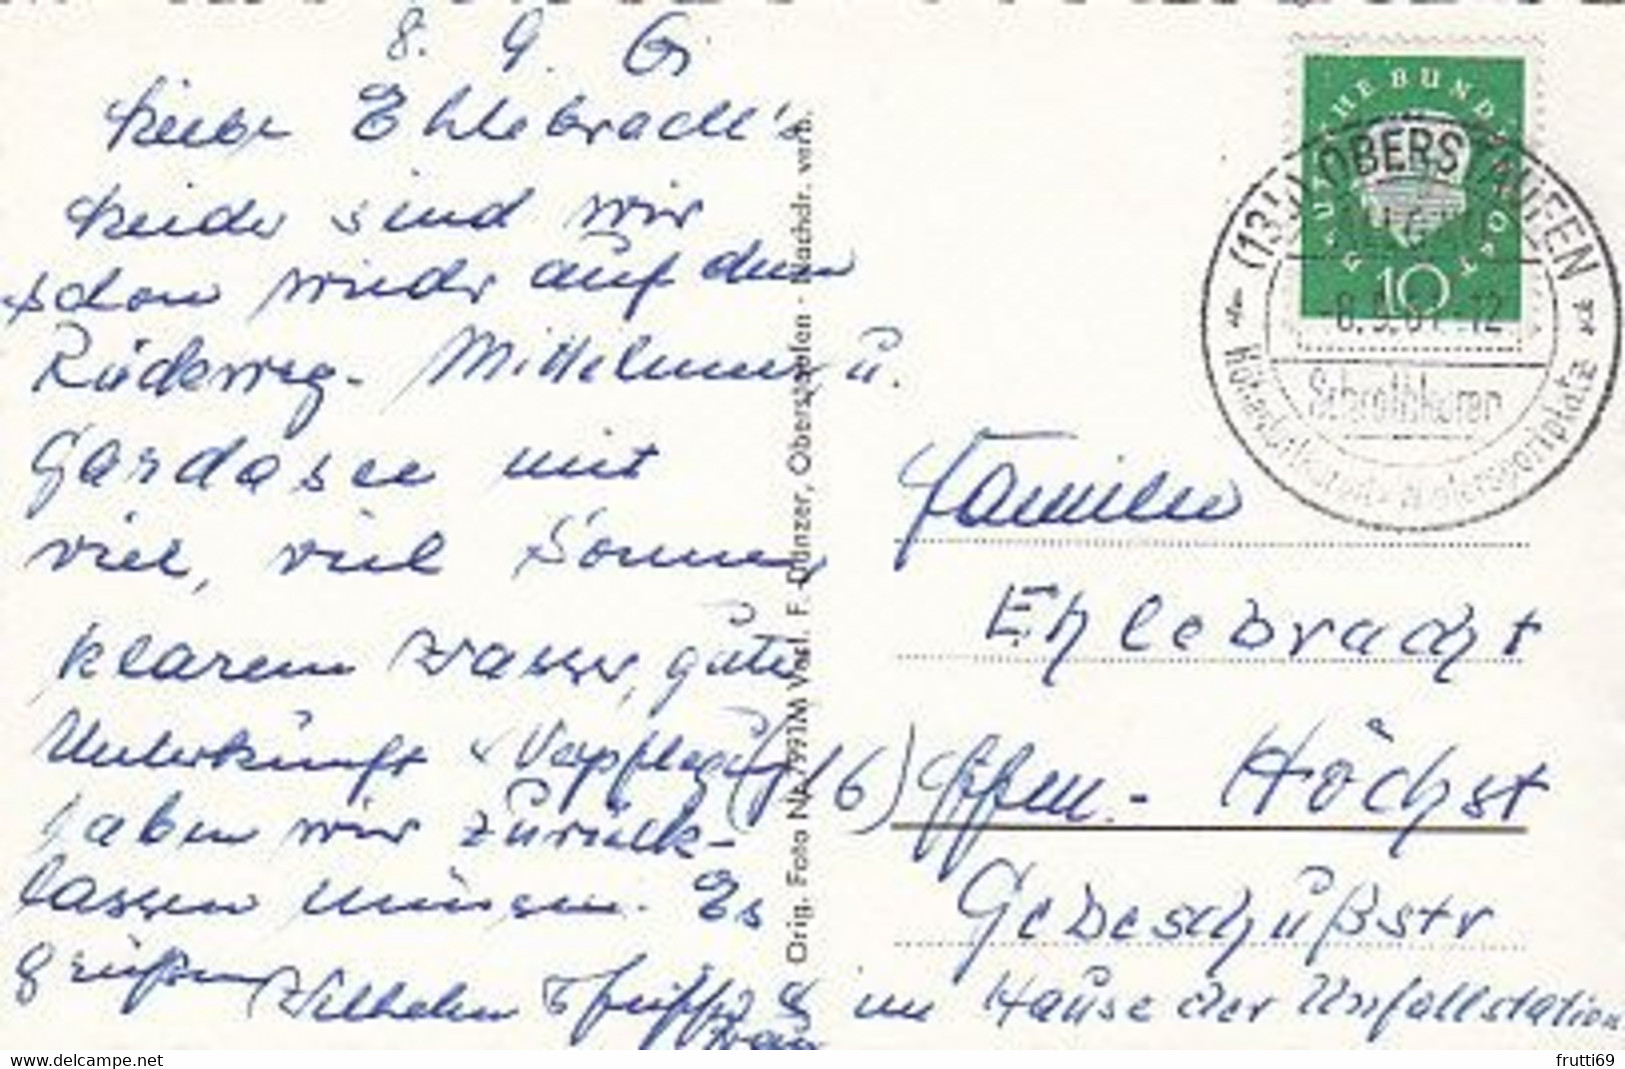 8. 9. 61
Liebe Ehlebracht's
Leider sind wir
schon wieder auf dem
Rückweg. Mittelmeer u.
Gardasee mit
viel, viel Sonne,
klarem Wasser, gute
Unterkunft & Verpflegung
haben wir zurück-
lassen müssen. Es
grüßen Wilhelm & Frau
Orig. Foto Verl. F. Dünzer, Oberstaufen - Nachdr. verb.
DEUTSCHE BUNDESPOST
10
OBERSTAUFEN
-8.9.61-12
Schrothkuren
Höhenluftkurort - Wintersportplatz
Familie
Ehlebracht
(16) Ffm. - Höchst
Gebeschußstr
im Hause der Unfallstation
frutti69
https://www.delcampe.net